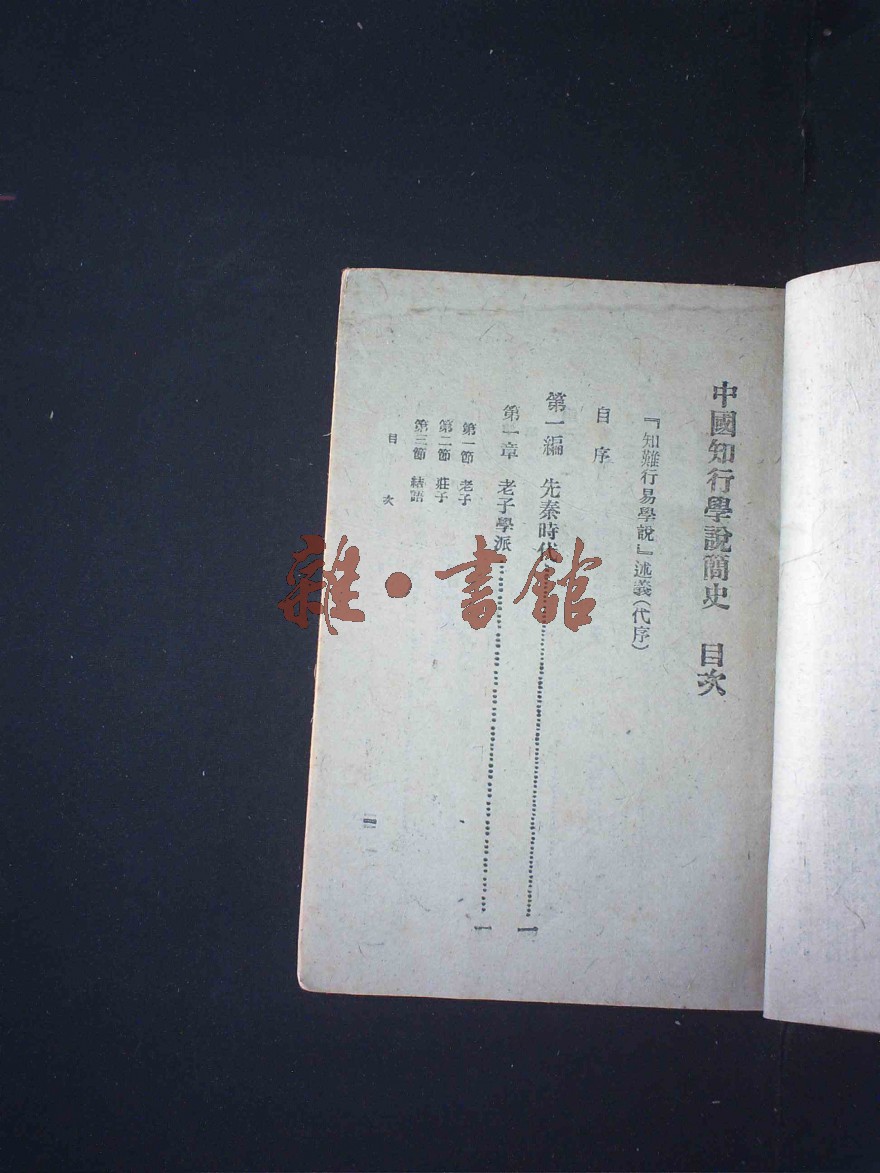 中國知行學說簡史 目次
『知難行易學說』述義(代序)
自序
第一編 先秦時代………一
第一章 老子學派………一
第一節 老子
第二節 莊子
第三節 結語
目次
雜·書館